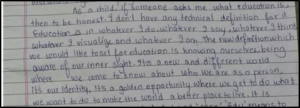 As a child, if someone asks me what education is
then to be honest I don't have any technical definition for it
Education is in whatever I do, whatever I say, whatever I think
whatever I visualize and whatever I say. The new definition which
we would like to test for education is knowing ourselves, being
aware of our inner sight. It's a new and different world
where we come to know about who we are as a person
It's our identity, it's a golden opportunity where we get to do what
we want to do to make the world a better place where it is
means to